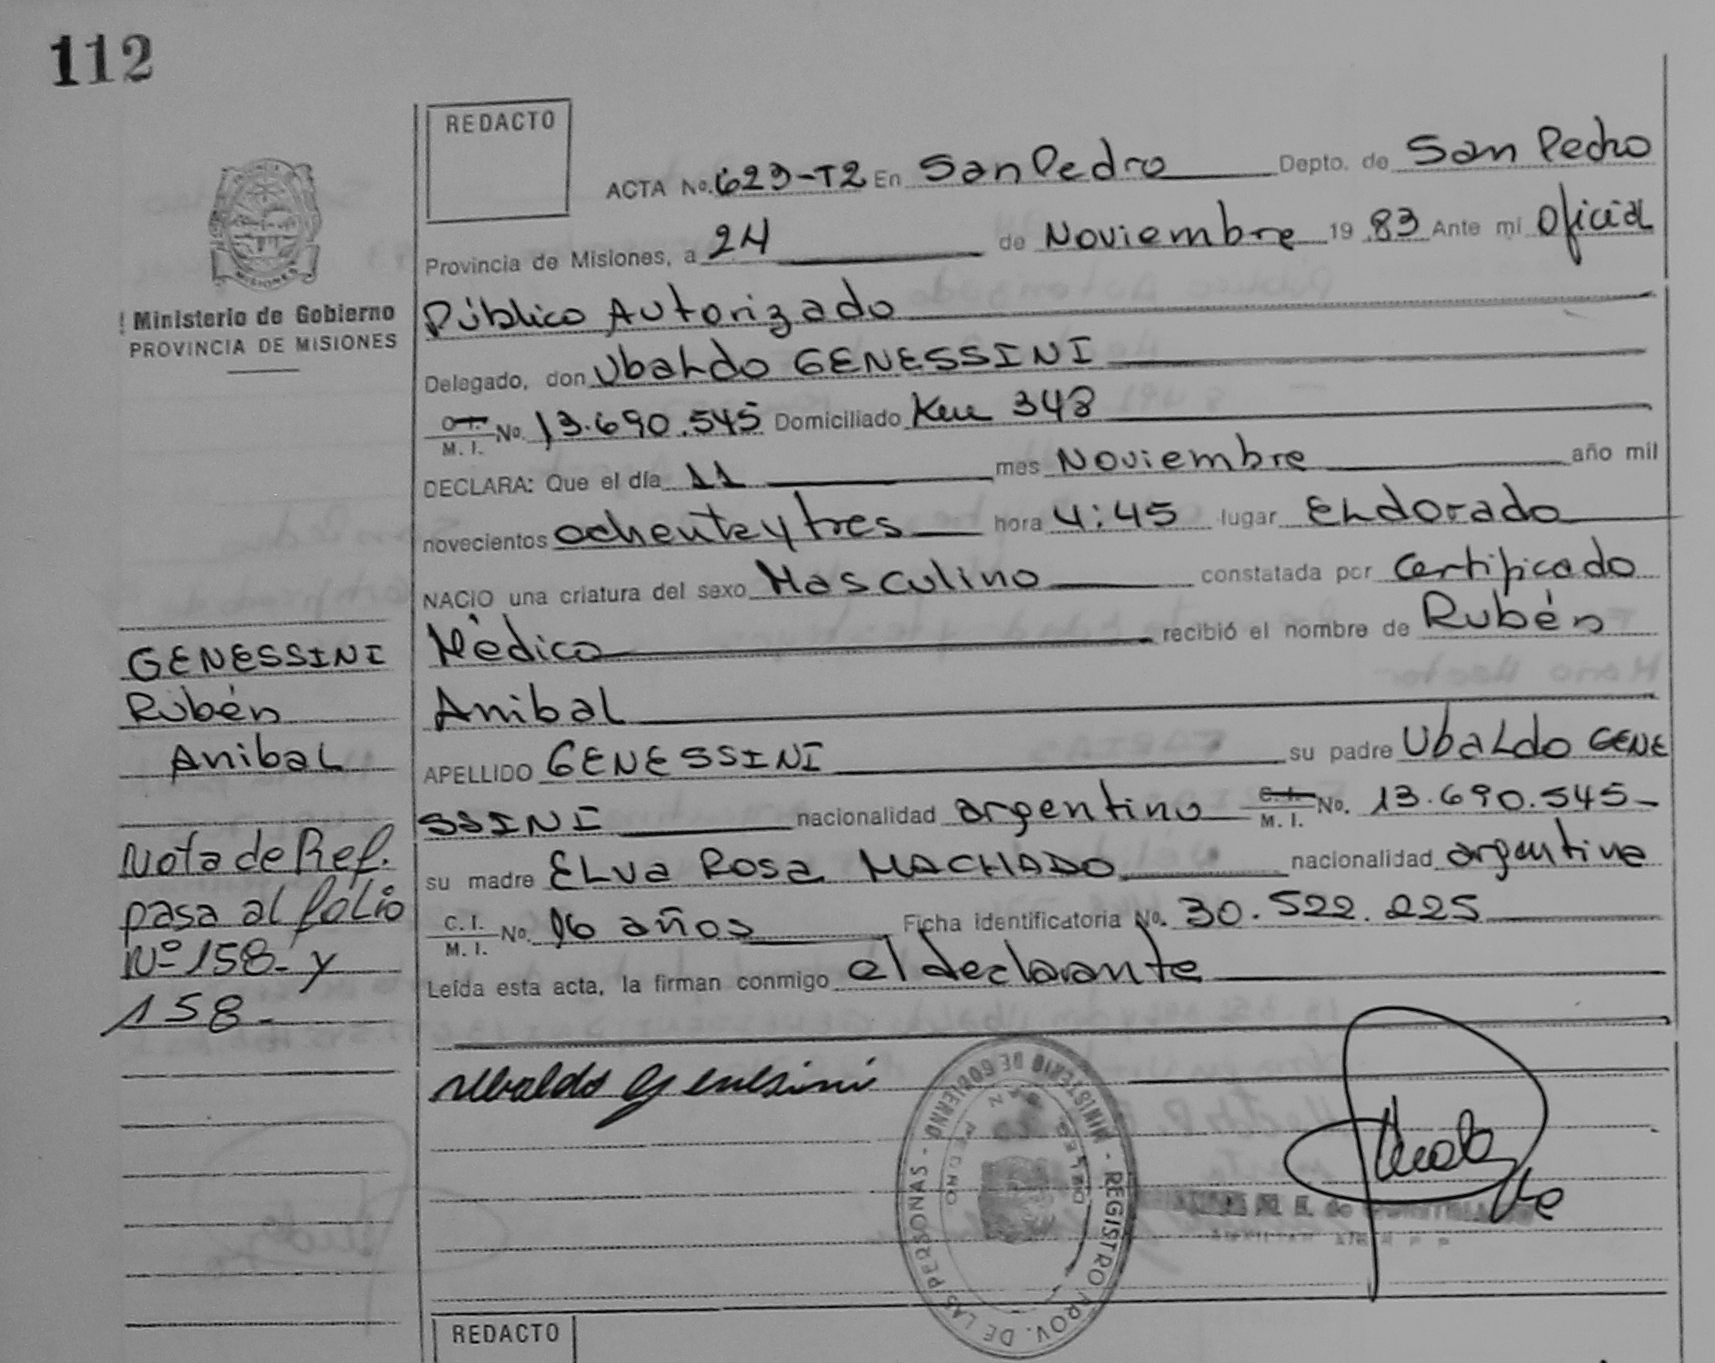 112
REDACTO
ACTA No. 623-T2 En San Pedro Depto. de San Pedro
Provincia de Misiones, a 24 de Noviembre 19 83 Ante mi Oficial
Público Autorizado
Delegado, don Ubaldo GENESSINI
C.I. M.I. No. 13.690.545 Domiciliado Km 348
DECLARA: Que el día 11 mes Noviembre año mil
novecientos ochenta y tres hora 4:45 lugar Eldorado
NACIO una criatura del sexo Masculino constatada por Certificado
Médico recibió el nombre de Rubén
Anibal
APELLIDO GENESSINI su padre Ubaldo GENE
SSINI nacionalidad argentino C.I. M.I. No. 13.690.545-
su madre ELVA ROSA MACHADO nacionalidad argentina
C.I. M.I. No. 16 años Ficha identificatoria No. 30.522.225
Leída esta acta, la firman conmigo el declarante
Ubaldo Genesini
Ministerio de Gobierno
PROVINCIA DE MISIONES
GENESSINI
Rubén
Anibal
Nota de Ref.
pasa al folio
Nº 158- y
158-
MINISTERIO DE GOBIERNO - REGISTRO PROV. DE LAS PERSONAS -
SAN PEDRO
REDACTO